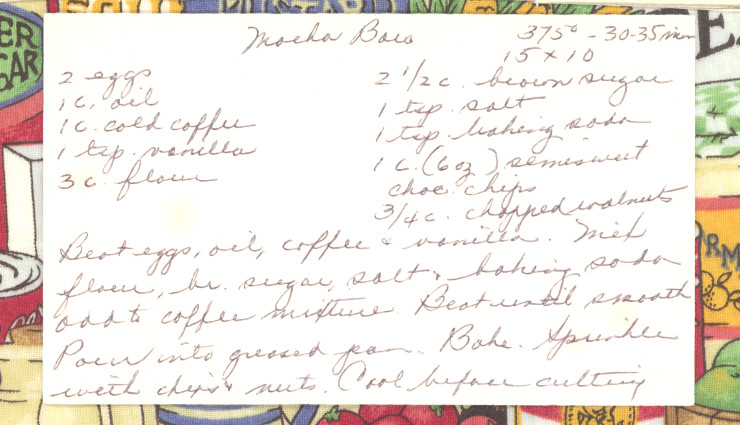 Mocha Bars
375° - 30-35 min
15 x 10
2 eggs
1 c. oil
1 c. cold coffee
1 tsp. vanilla
3 c. flour
2 1/2 c. brown sugar
1 tsp. salt
1 tsp. baking soda
1 c. (6 oz) semisweet
choc. chips
3/4 c. chopped walnuts
Beat eggs, oil, coffee & vanilla. Mix
flour, br. sugar, salt & baking soda
add to coffee mixture. Beat until smooth
Pour into greased pan. Bake. Sprinkle
with chips & nuts. Cool before cutting